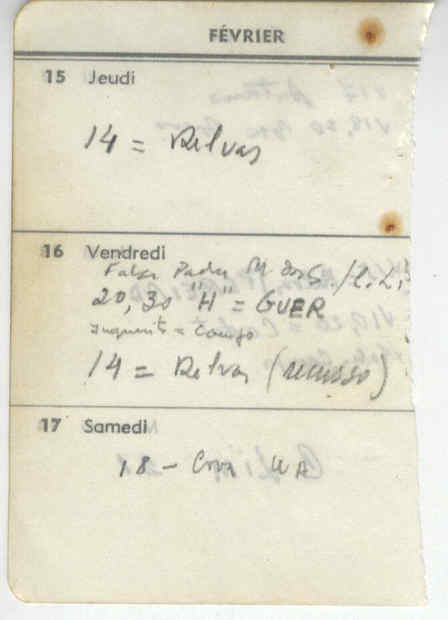 FÉVRIER
15 Jeudi
14 = Relvas
16 Vendredi
Falar Padre M. dos S.
20,30 "H" = GUER
14 = Relvas (recurso)
17 Samedi
18 -